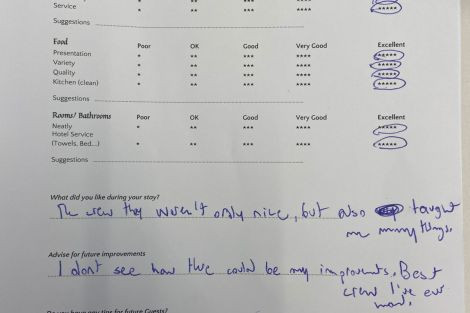 Service * ** *** **** *****
Suggestions
Food Poor OK Good Very Good Excellent
Presentation * ** *** **** *****
Variety * ** *** **** *****
Quality * ** *** **** *****
Kitchen (clean) * ** *** **** *****
Suggestions
Rooms/ Bathrooms Poor OK Good Very Good Excellent
Neatly * ** *** **** *****
Hotel Service
(Towels, Bed...) * ** *** **** *****
Suggestions
What did you like during your stay?
The crew they weren't only nice, but also taught
me many things.
Advise for future improvements
I dont see how the could be my improvents. Best
crew I've ever
Do you have any tips for future Guests?